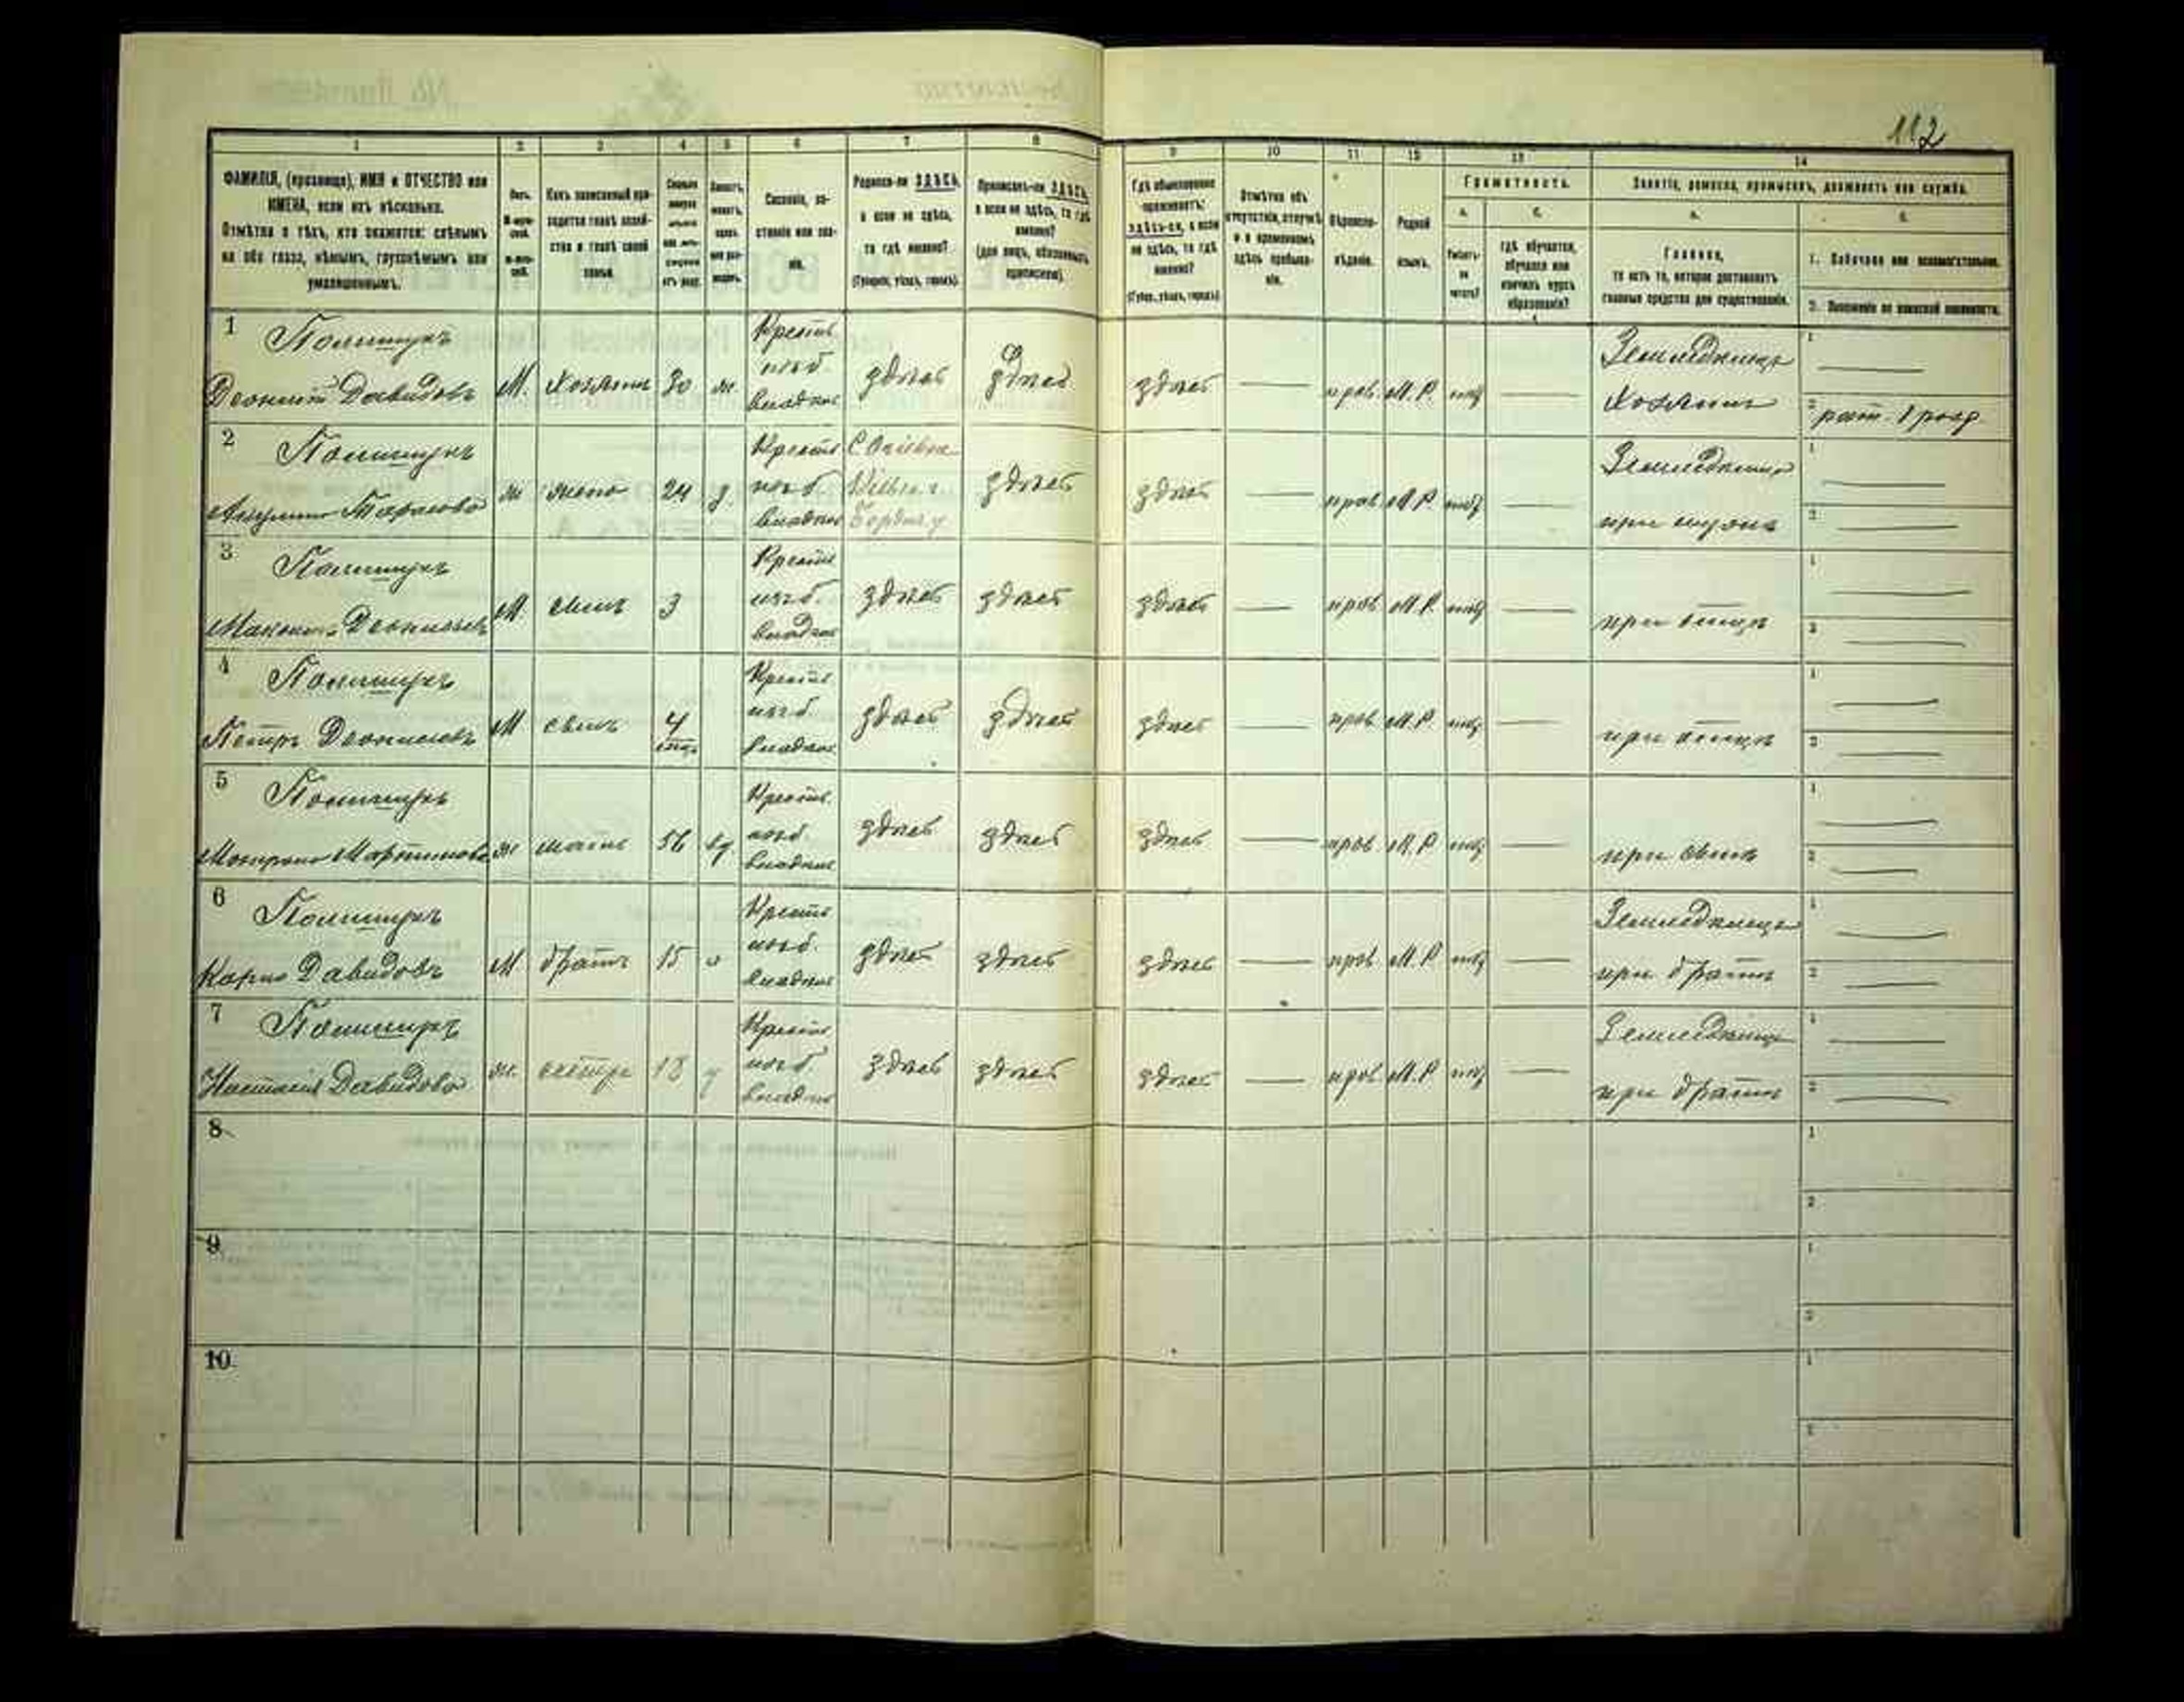 112
1 2 3 4 5 6 7 8 9 10 11 12 13 14
ФАМИЛІЯ, (прозвище), ИМЯ и ОТЧЕСТВО или
ИМЕНА, если ихъ нѣсколько.
Отмѣтка о тѣхъ, кто окажется: слѣпымъ
на оба глаза, нѣмымъ, глухонѣмымъ или
умалишеннымъ.
Полъ.
Какъ записанный при-
ходится главѣ хозяй-
ства и главѣ своей
семьи.
Сословіе, со-
стояніе или зва-
ніе.
Родился-ли ЗДѢСЬ,
а если не здѣсь,
то гдѣ именно?
(Губернія, уѣздъ, городъ).
Приписанъ-ли ЗДѢСЬ,
а если не здѣсь, то гдѣ
именно?
(для лицъ, обязанныхъ
припискою).
Гдѣ обыкновенно
проживаетъ:
здѣсь-ли, а если
не здѣсь, то гдѣ
именно?
(Губер., уѣздъ, городъ).
Отмѣтка объ
отсутствіи, отлучкѣ
и о временномъ
здѣсь пребыва-
ніи.
Вѣроиспо-
вѣданіе.
Родной
языкъ.
Грамотность.
а.
Умѣетъ-
ли
читать?
б.
гдѣ обучается,
обучался или
кончилъ курсъ
образованія?
Занятіе, ремесло, промыселъ, должность или служба.
а.
Главное,
то есть то, которое доставляетъ
главныя средства для существованія.
б.
1. Побочное или вспомогательное.
2. Положеніе по воинской повинности.
1 Полищукъ
Деонисій Давидовъ М. хозяинъ 30 ж. Крестьян. изъ б. владѣл. здѣсь здѣсь здѣсь — прав. М.Р. нѣтъ — Земледѣлецъ хозяинъ 1 — 2 рат. 1 разр.
2 Полищукъ
Тарасова ж жена 24 з. Крестьян. изъ б. владѣл. здѣсь здѣсь — прав. М.Р. нѣтъ — Земледѣлец при мужѣ 1 — 2 —
3 Полищукъ
Деонисьевъ М. сынъ 3 Крестьян. изъ б. владѣл. здѣсь здѣсь здѣсь — прав. М.Р. нѣтъ — при отцѣ 1 — 2 —
4 Полищукъ
Петръ Деонисьевъ М сынъ 4 мѣс. Крестьян. изъ б. владѣл. здѣсь здѣсь здѣсь — прав. М.Р. нѣтъ — при отцѣ 1 — 2 —
5 Полищукъ
Мартинова ж мать 56 вд. Крестьян. изъ б. владѣл. здѣсь здѣсь здѣсь — прав. М.Р. нѣтъ — при сынѣ 1 — 2 —
6 Полищукъ
Карпо Давидовъ М. братъ 15 Крестьян. изъ б. владѣл. здѣсь здѣсь здѣсь — прав. М.Р. нѣтъ — Земледѣлец при братѣ 1 — 2 —
7 Полищукъ
Настасія Давидова ж. сестра 18 Крестьян. изъ б. владѣл. здѣсь здѣсь здѣсь — прав. М.Р. нѣтъ — Земледѣлец при братѣ 1 — 2 —
8
1
2
9
1
2
10
1
2